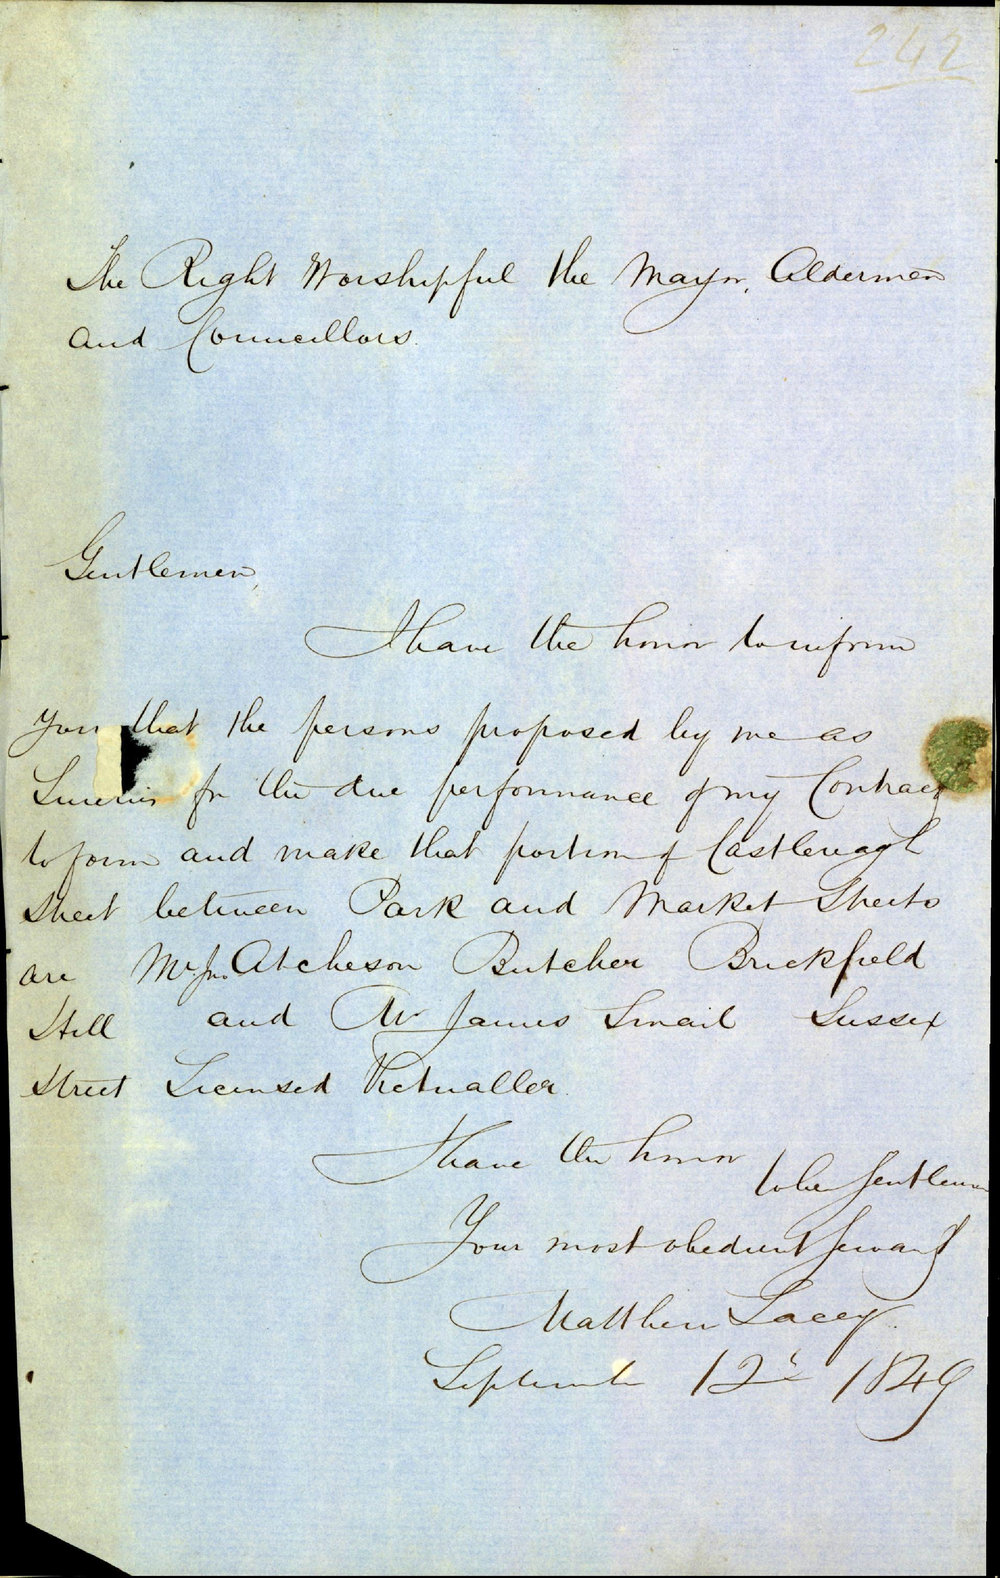 242
The Right Worshipful the Mayor, Aldermen
and Councillors.
Gentlemen,
I have the honor to inform
you that the persons proposed by me as
Sureties for the due performance of my Contract
to form and make that portion of Castlereagh
Street between Park and Market Streets
are Mr. Jno. Atcheson Butcher Brickfield
Hill and Mr James Smail Sussex
Street Licensed Victualler.
I have the honor
to be Gentlemen
Your most obedient Servant
Matthew Lacey.
September 12th 1849